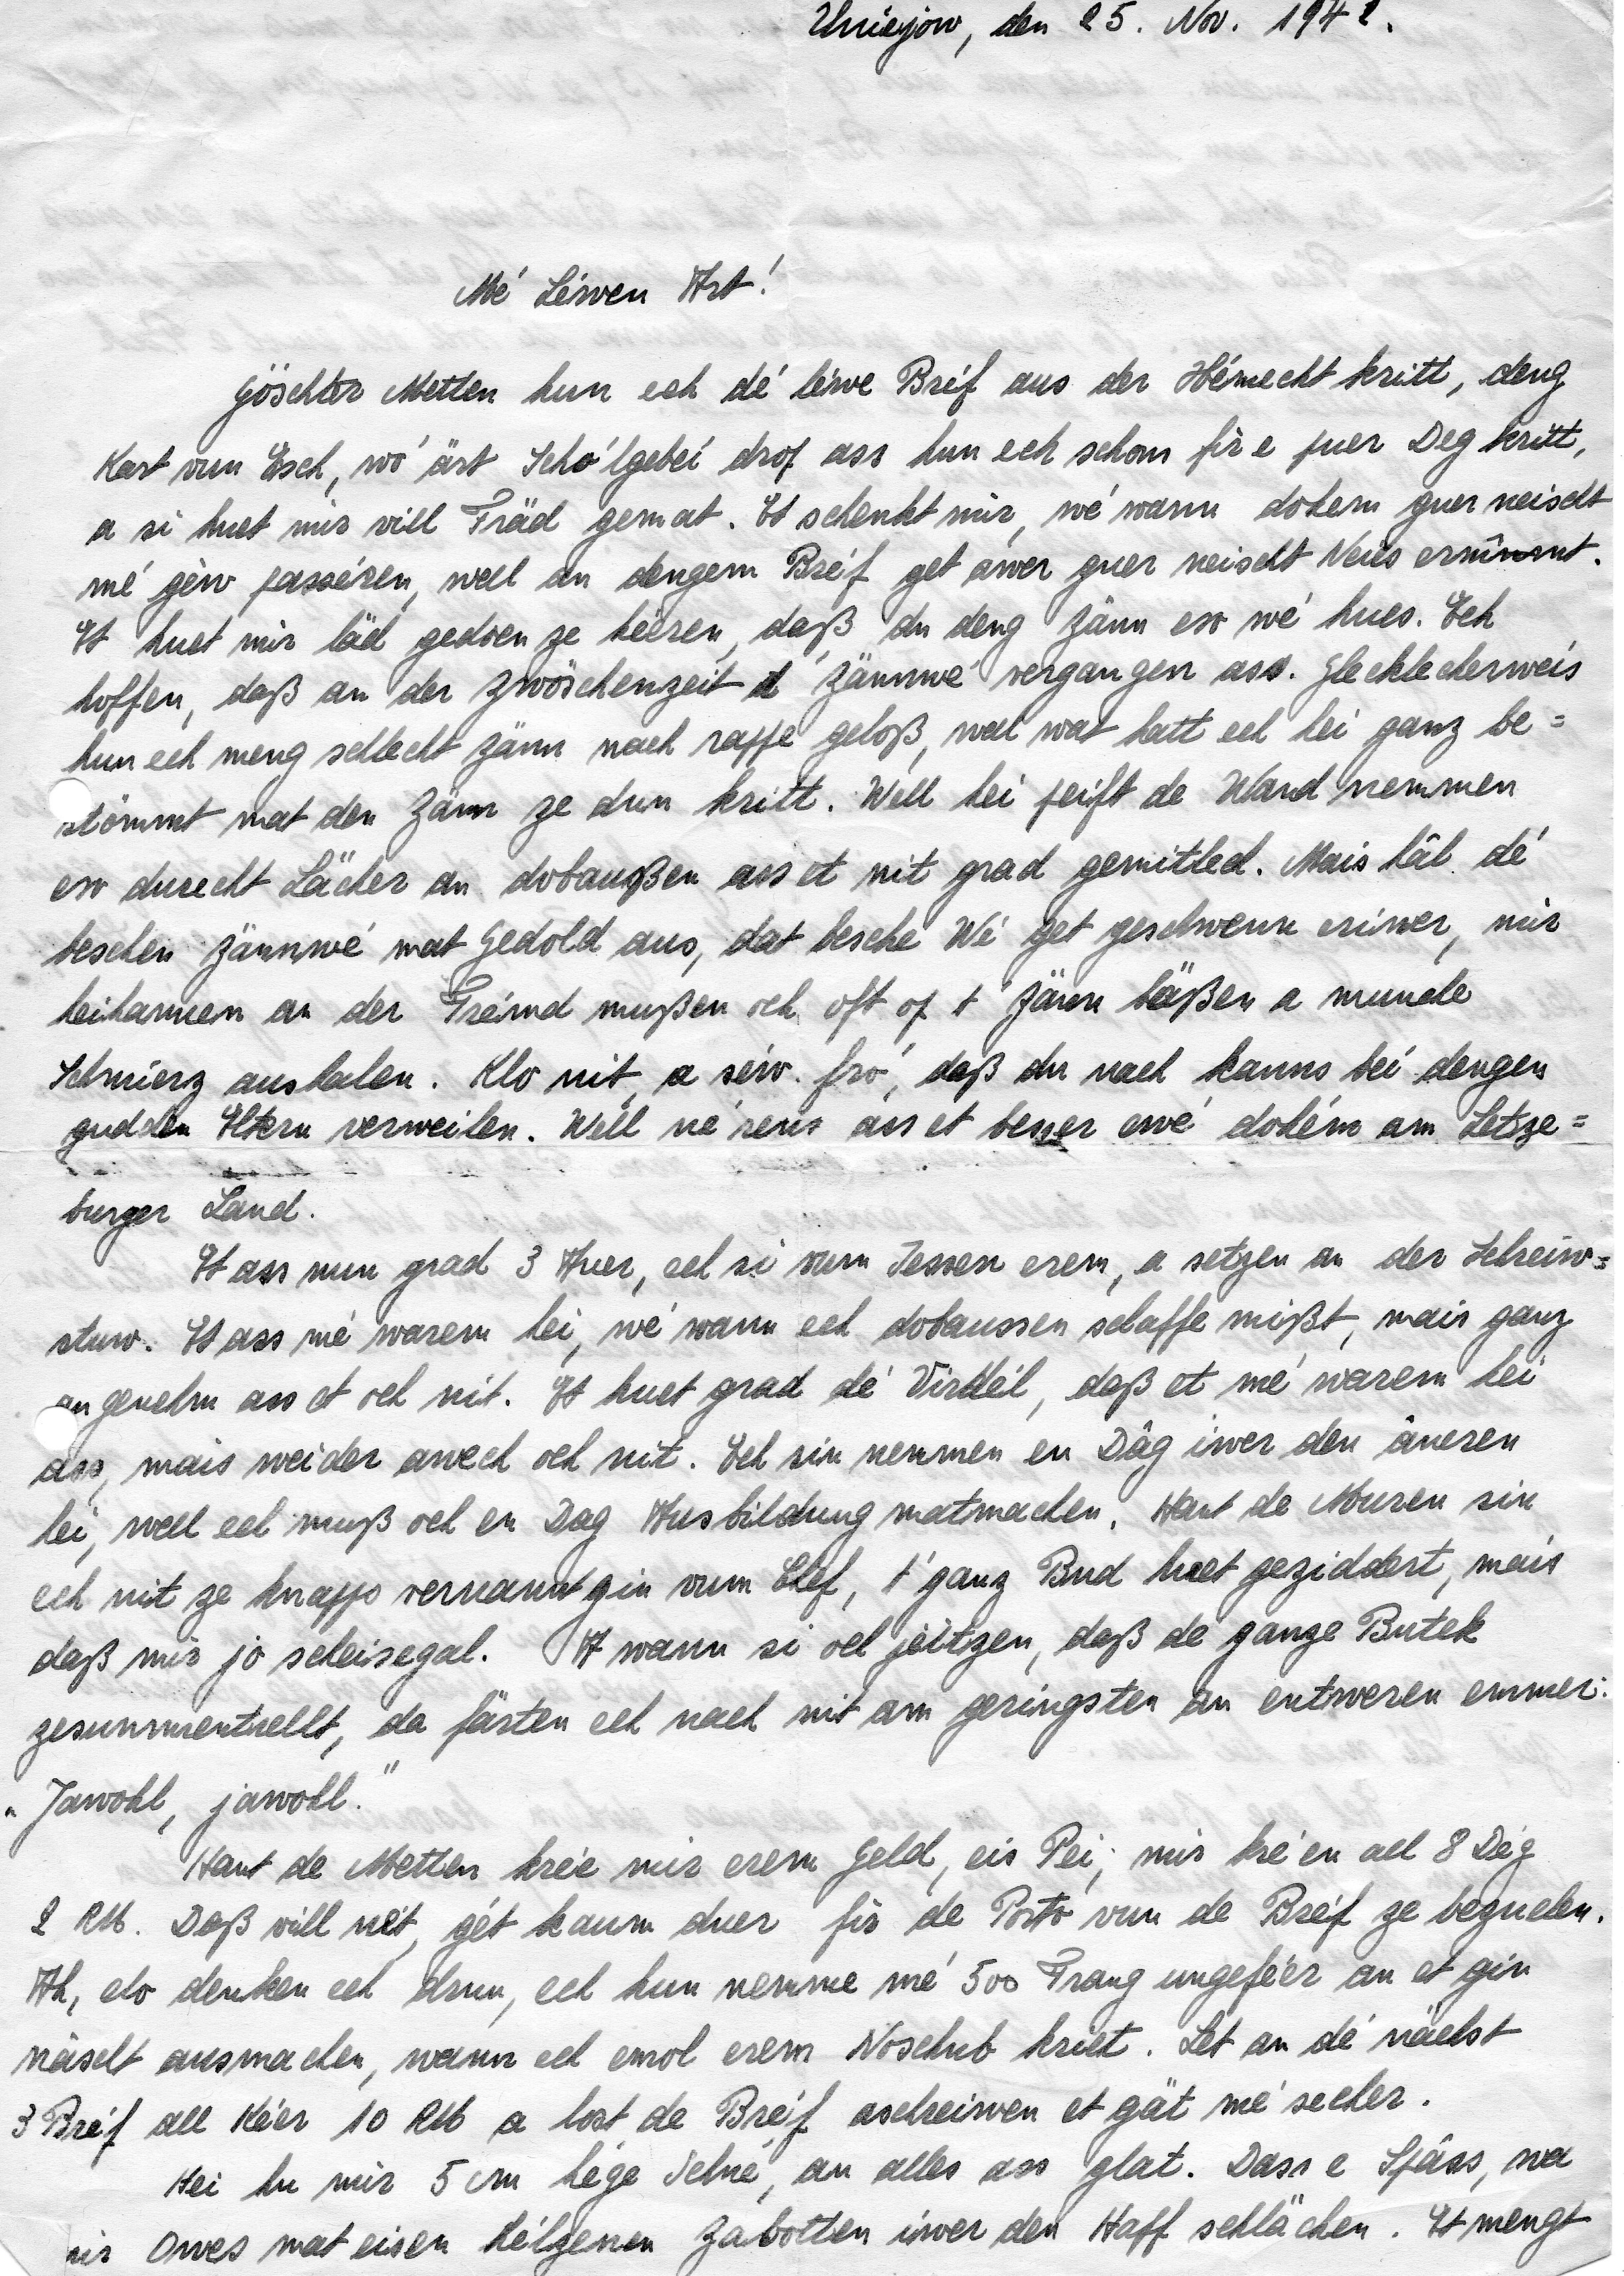 Uniejow, den 25. Nov. 1942.
Mé Léiwen Art!
Göschter Metten hun ech dé léiwe Bréif aus der Hémecht kritt, deng
Kart vun Esch, wó ärt Schó'lgebei drof ass hun ech schons fir e puer Deg kritt,
a si huet mir vill Fräd gemat. Et schenkt mir, wé wann dohem guer neischt
mé gèw passéren, well an dengem Bréif get awer guer neischt Neies ernimmt.
Et huet mir läd gedoen ze héieren, daß du deng Zänn eso wé hues. Ech
hoffen, daß an der Zwöschenzeit d' Zännwé vergangen ass. Glecklecherweis
hun ech meng schlecht Zänn nach rappe geloß, well wat hatt ech hei ganz be=
stömmt mat den Zänn ze dun kritt. Well hei peift de Wand nemmen
eso durecht Lächer an dobaußen ass et nit grad gemittled. Mais hâl dé
beschen Zännwé mat Gedold aus, dat besche Wé get geschwenn eriwer, mir
heihannen an der Frémd mußen och oft op t' Zänn bäßen a munche
Schmierz aushalen. Klo nit, a séiw fró, daß du nach kanns bei dengen
gudden Eltern verweilen. Well né'rens ass et besser ewé dohém am Letze=
burger Land.
Et ass nun grad 3 Auer, ech si vum Iessen erem, a setzen an der Schreiw=
stuw. Et ass mé warem hei, wé wann ech dobaussen schaffe mißt, mais ganz
angenehm ass et och nit. Et huet grad dé Virdél, daß et mé warem hei
ass, mais weider awech och nit. Ech sin nemmen en Dâg iwer den âneren
hei, well ech muß och en Dag Ausbildung matmachen. Haut de Mouren sin
ech nit ze knapps vernannt gin vum Chef, t'ganz Bud huet geziddert, mais
daß mir jo scheisegal. A wann si och jeitzen, daß de ganze Butek
zesummentrellt, da färten ech nach nit am geringsten an entweren emmer:
„Jawohl, jawohl."
Haut de Metten kréie mir erem Geld, eis Pei; mir kré'en all 8 Dég
2 RM. Daß vill nét, gét kaum duer fir de Porto vun de Bréif ze bezuelen.
Ah, elo denken ech drun, ech hun nemme mé 500 Frang ungeféer an et gin
näscht ausmachen, wann ech emol erem Noschub kriet. Let an dé nächst
3 Bréif all Kéer 10 RM a lost de Bréif aschreiwen et gät mé sécher.
Hei hu mir 5 cm hége Schné, an alles ass glat. Dass e Spâss, wa
mir Owes mat eisen hélzenen Zabotten iwer den Haff schlächen. Et mengt